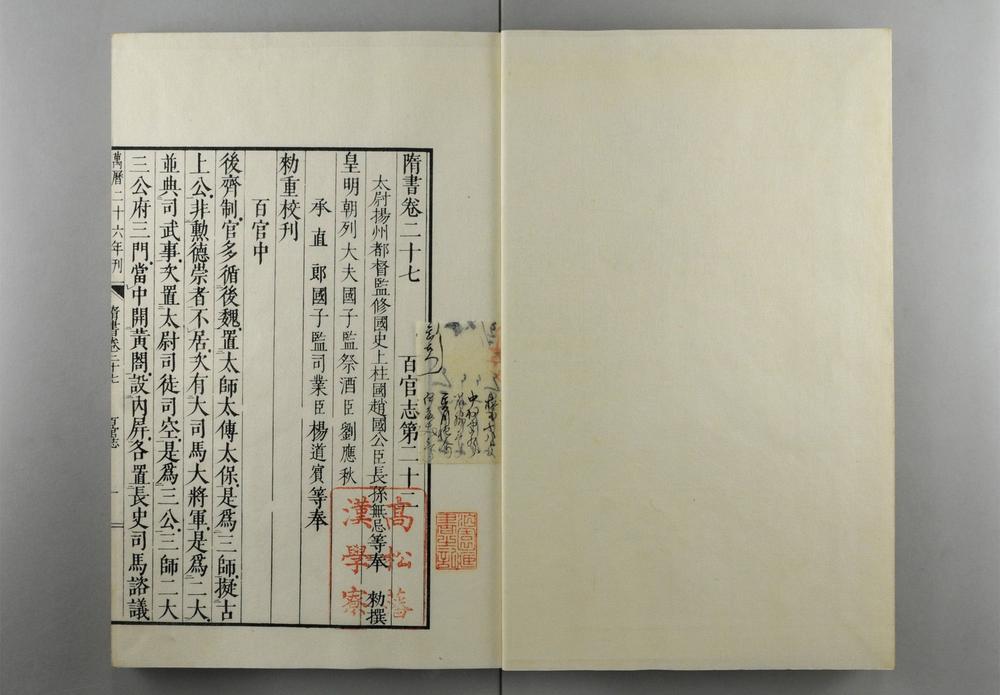 隋書卷二十七　百官志第二十二
太尉揚州都督監修國史上柱國趙國公臣長孫無忌等奉　勑撰
皇明朝列大夫國子監祭酒臣劉應秋
承直郎國子監司業臣楊道賓等奉
勑重校刊
百官中
後齊制官多循後魏置太師太傅太保是爲三師擬古
上公非勲德崇者不居次有大司馬大將軍是爲二大
並典司武事次置太尉司徒司空是爲三公三師二大
三公府三門當中開黃閤設內屏各置長史司馬諮議
萬曆二十六年刊　隋書卷二十七　百官志　一
高松藩
漢學寮